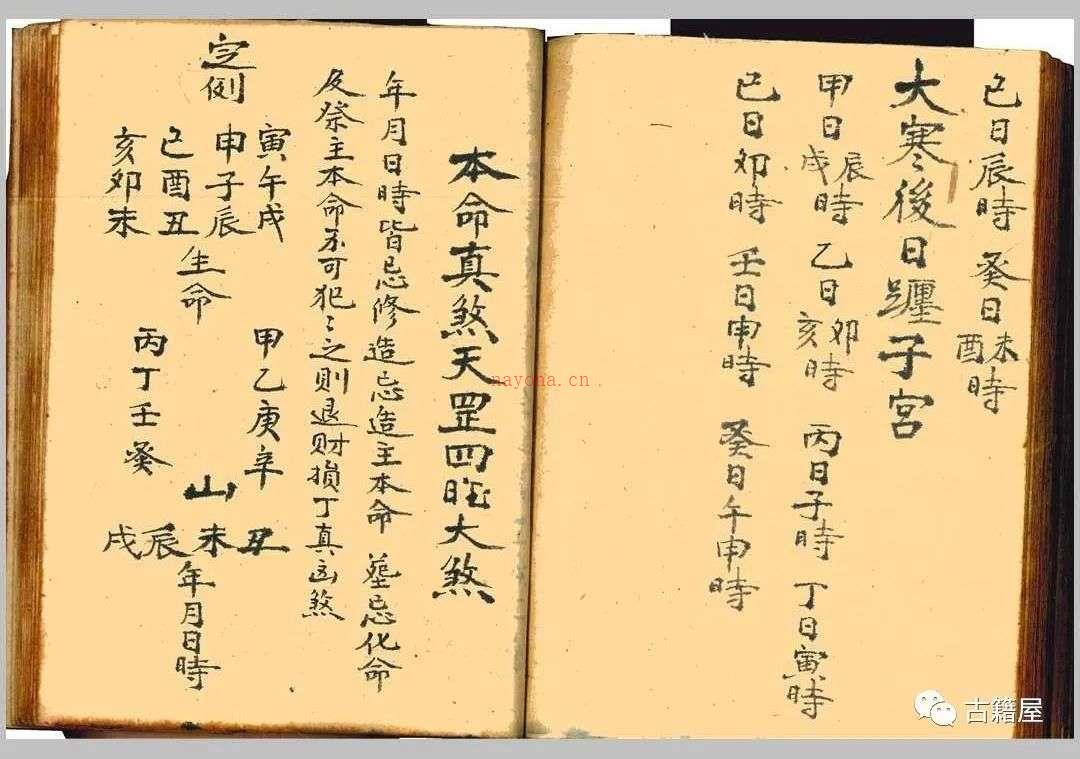 己日辰時 癸日未酉時
大寒後日躔子宮
甲日辰戌時 乙日卯亥時 丙日子時 丁日寅時
己日卯時 壬日申時 癸日午申時
本命真煞天罡四旺大煞
年月日時皆忌修造忌造主本命 墓忌化命
及祭主本命不可犯〻之則退財損丁真凶煞
定例
寅午戌 申子辰 巳酉丑 亥卯未 生命
甲乙庚辛 丙丁壬癸 山
丑未辰戌 年月日時
nayona.cn
古籍屋